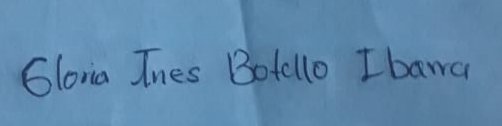 Gloria Ines Botello Ibarra